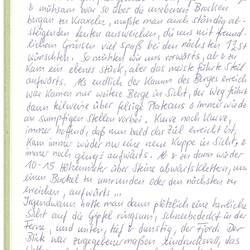 & mühsam war so über die unebenen Brocken
bergan zu kraxeln, mußte man auch ständig ab-
steigenden Leuten ausweichen, die uns mit freund-
lichen Grüßen viel Spaß bei den nächsten 12 St
wünschten. So mühten wir uns vorwärts, ab & zu
kam ein ebenes Stück, aber das meiste führte steil
aufwärts. Als endlich der Kamm des Berges erreicht
war kamen nur weitere Berge in Sicht, der Weg führte
dann teilweise über felsige Plateaus & immer wieder
an sumpfigen Stellen vorbei. Kurve nach Kurve,
immer hoffend, daß nun bald das Ziel erreicht ist,
kam immer wieder nur eine neue Kuppe in Sicht, &
immer noch gings aufwärts. Ab & an dann wieder
10-15 Höhenmeter über Steine abwärts klettern, um
einen Buckel zu umrunden oder den nächsten zu
erreichen, aufwärts ...
Irgendwann hatte man dann plötzlich eine herrliche
Sicht auf die Gipfel ringsum, schneebedeckt in der
Ferne, und unter, tief unter uns, der Fjord. Der
Blick war atemberaubend,